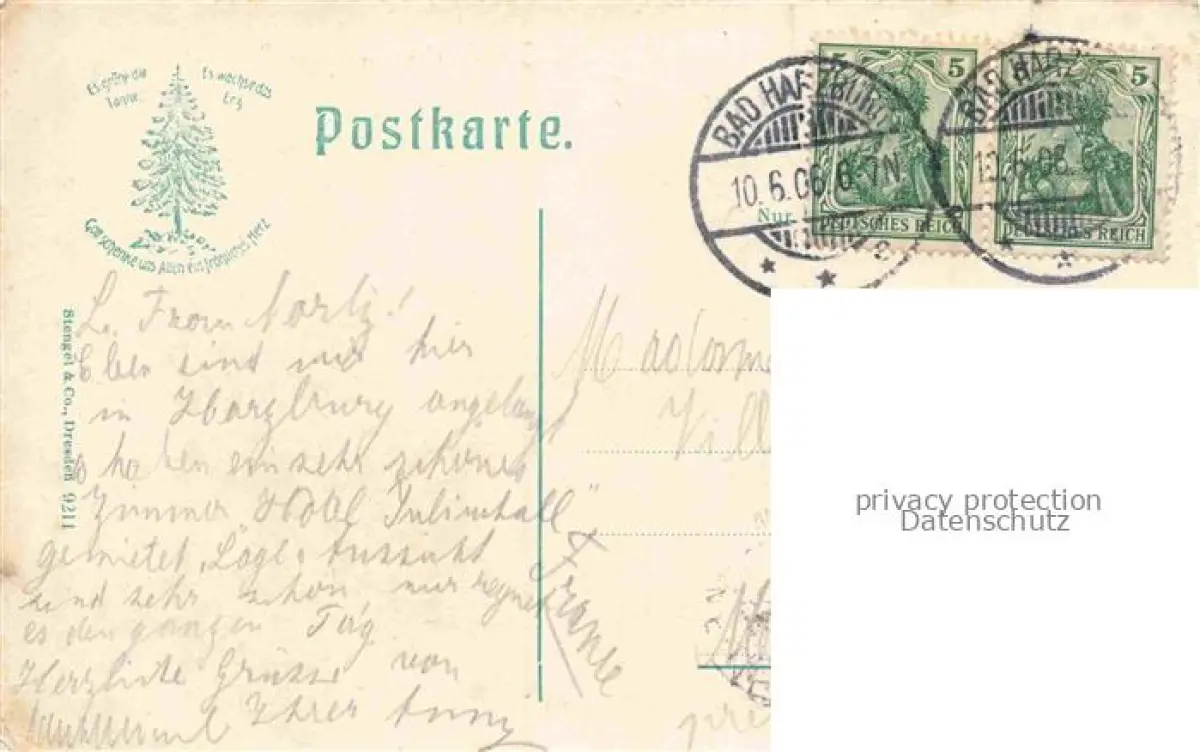 Es grüne die Tanne
Es wachse das Erz
Gott schenke uns Allen ein fröhliches Herz
Postkarte.
BAD HARZBURG
10.6.06 6-7N
5
DEUTSCHES REICH
BAD HARZ
10.6.06
5
DEUTSCHES REICH
Nur
Stengel & Co., Dresden 9211
L. Frau
Eben sind wir hier
in Harzburg angelangt
haben ein sehr schönes
Zimmer Hotel „Juliushall“
gemietet, Lage u Aussicht
sind sehr schön nur regnet
es den ganzen Tag
Herzliche Grüsse von
Ihrer Anny
Fränkle
Madame
Vill
privacy protection
Datenschutz